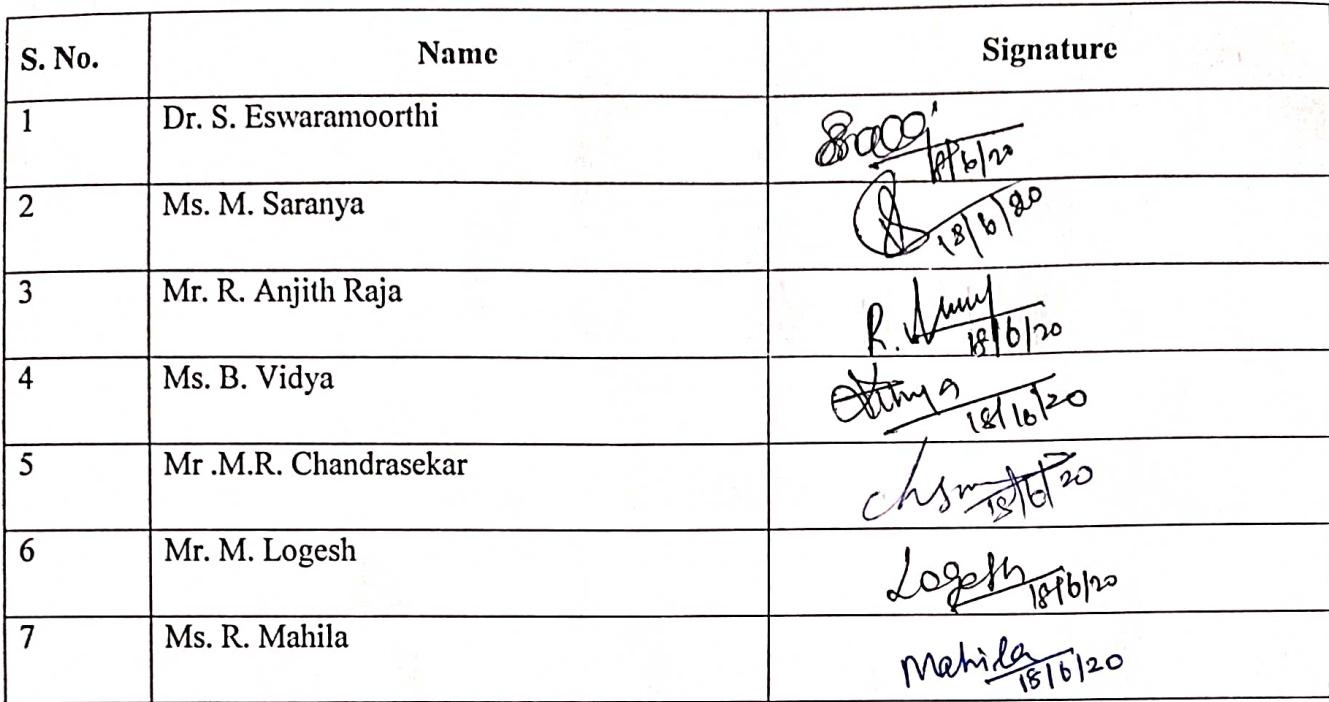 S. No. Name Signature
1 Dr. S. Eswaramoorthi
18/6/20
2 Ms. M. Saranya
18/6/20
3 Mr. R. Anjith Raja R.
18/6/20
4 Ms. B. Vidya
18/6/20
5 Mr .M.R. Chandrasekar
18/6/20
6 Mr. M. Logesh Logesh
18/6/20
7 Ms. R. Mahila Mahila
18/6/20